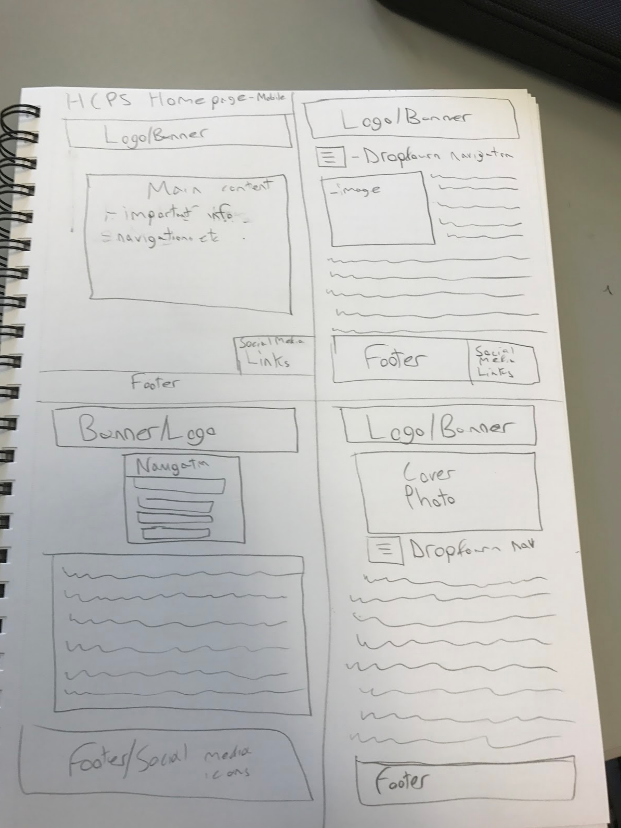 HCPS Homepage - Mobile
Logo/Banner
Main content
- important info
- navigation etc
Social Media
Links
Footer
Logo/Banner
- Dropdown navigation
- image
Footer
Social
Media
Links
Banner/Logo
Navigation
Footer/Social media
icons
Logo/Banner
Cover
Photo
Dropdown nav
Footer